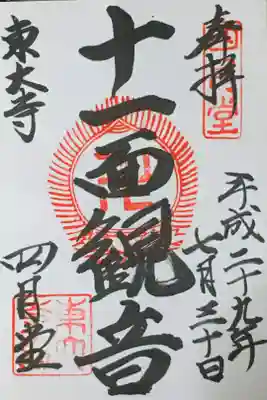 奉拝
平成二十九年
七月三十日
十一面観音
東大寺
四月堂